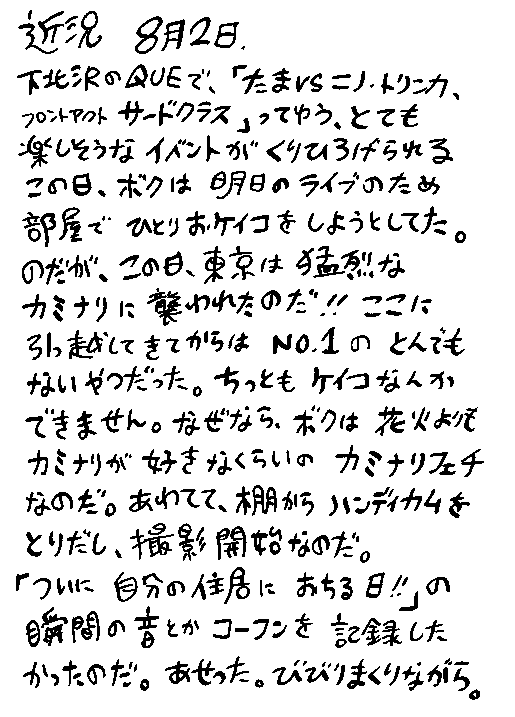 近況 8月2日.
下北沢のQUEで、「たまvsニノ・トリンカ、
フロントアクト サードクラス」ってゆう、とても
楽しそうな イベントが くりひろげられる
この日、ボクは 明日の ライブのため
部屋で ひとりおケイコを しようとしてた。
のだが、この日、東京は 猛烈な
カミナリに 襲われたのだ!! ここに
引っ越してきてからは NO.1の とんでも
ないやつだった。ちっとも ケイコなんか
できません。なぜなら、ボクは 花火よりも
カミナリが 好きなくらいの カミナリフェチ
なのだ。あわてて、棚から ハンディカムを
とりだし、撮影開始なのだ。
「ついに 自分の住居に おちる日!!」の
瞬間の音とか コーフンを 記録した
かったのだ。あせった。びびりまくりながら。